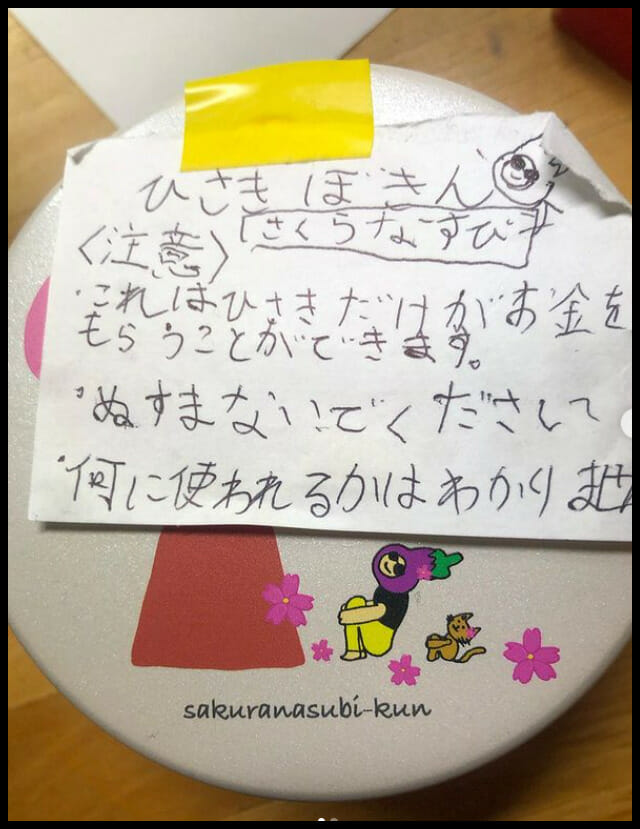 ひさきぼきん
さくらなすび
〈注意〉
・これはひさきだけがお金を
もらうことができます。
・ぬすまないでください
・何に使われるかはわかりませ
sakuranasubi-kun